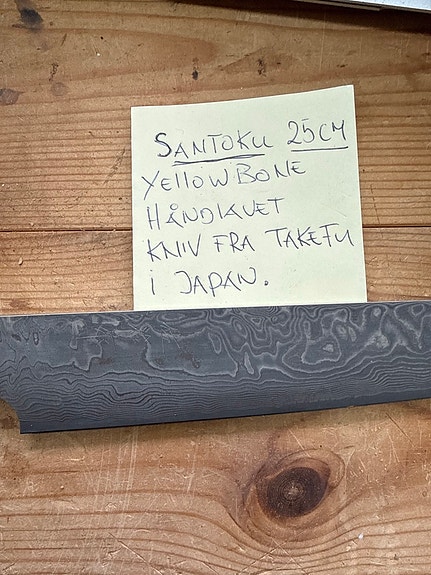 SANTOKU 25CM
YEllOWBONE
HÅNDLAVET
KNIV FRA TAKEFU
i JAPAN.